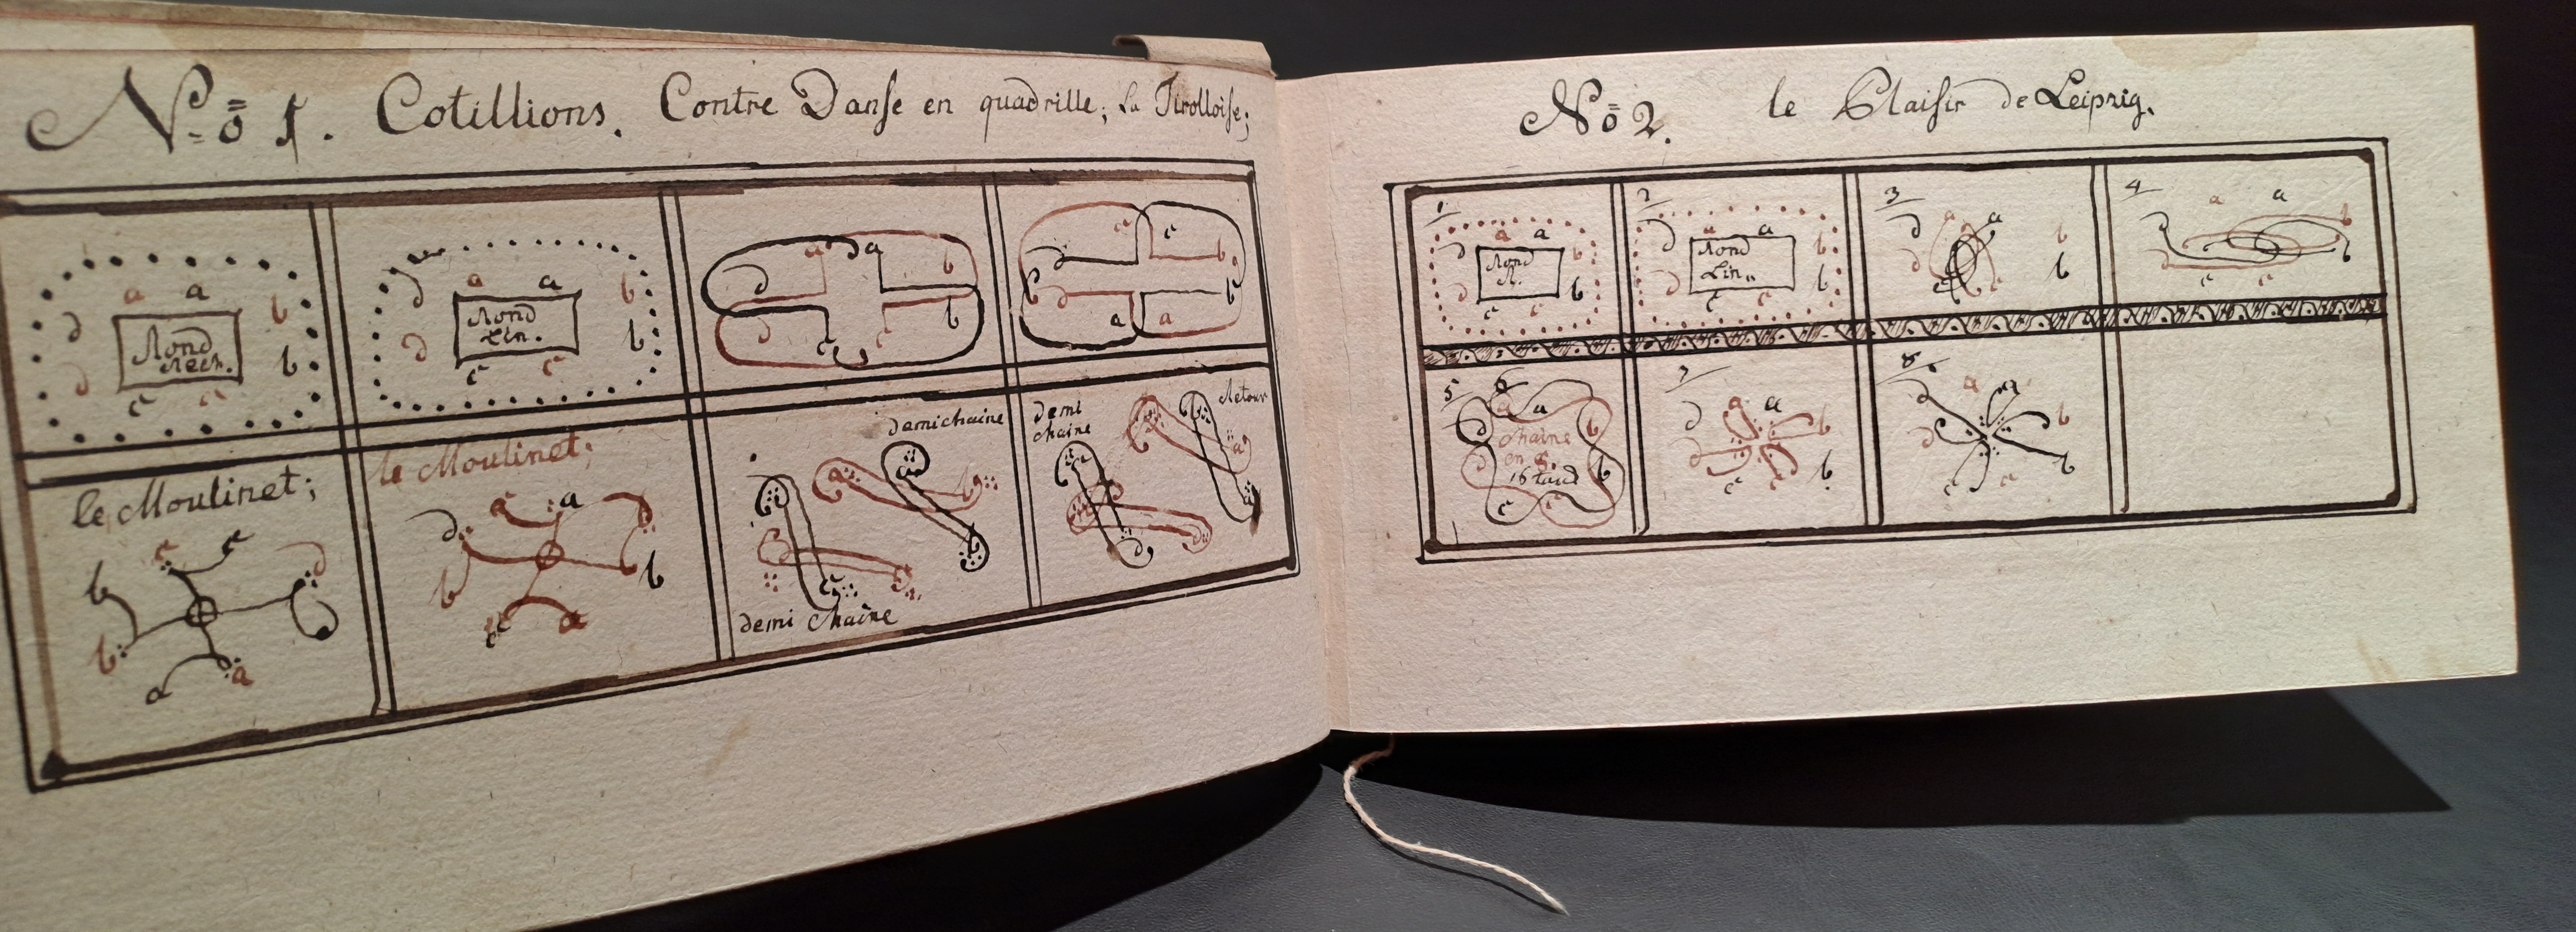 No 1. Cotillions. Contre Danse en quadrille; La Tirolloise;
a a
d b
Rond
Rech.
d b
c c
a a
d b
Rond
Lin.
d b
c c
a a
d b
d b
c c
c c
d b
b d b
a a
le Moulinet;
c c d
b
b
a a
le Moulinet;
c a d
d b
b
c a
demi chaine
a a b
c d
b
demi Chaîne
demi
chaine
Retour
a
b
d
No 2. le Plaisir de Leipzig.
1
a a
d b
Rond
R.
d b
c c
2
a a
d b
Rond
Lin.
d b
c c
3
a a
d b
d b
c c
4
a a
d b
d b
c c
5 6
a a
d b
chaine
en 8.
16 tact
d b
c c
7
a a
d b
d b
c c
8.
a a
d b
d b
c c